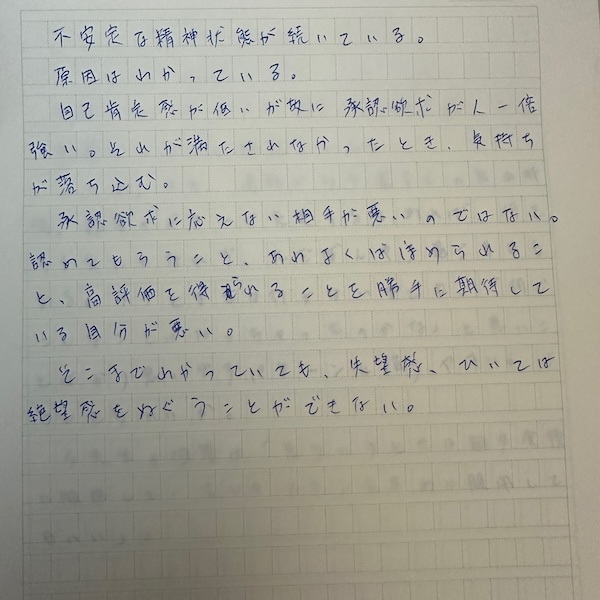 不安定な精神状態が続いている。
原因はわかっている。
自己肯定感が低いが故に承認欲求が人一倍
強い。それが満たされなかったとき、気持ち
が落ち込む。
承認欲求に応えない相手が悪いのではない。
認めてもらうこと、あわよくばほめられるこ
と、高評価を得られることを勝手に期待して
いる自分が悪い。
そこまでわかっていても、失望感、ひいては
絶望感をぬぐうことができない。